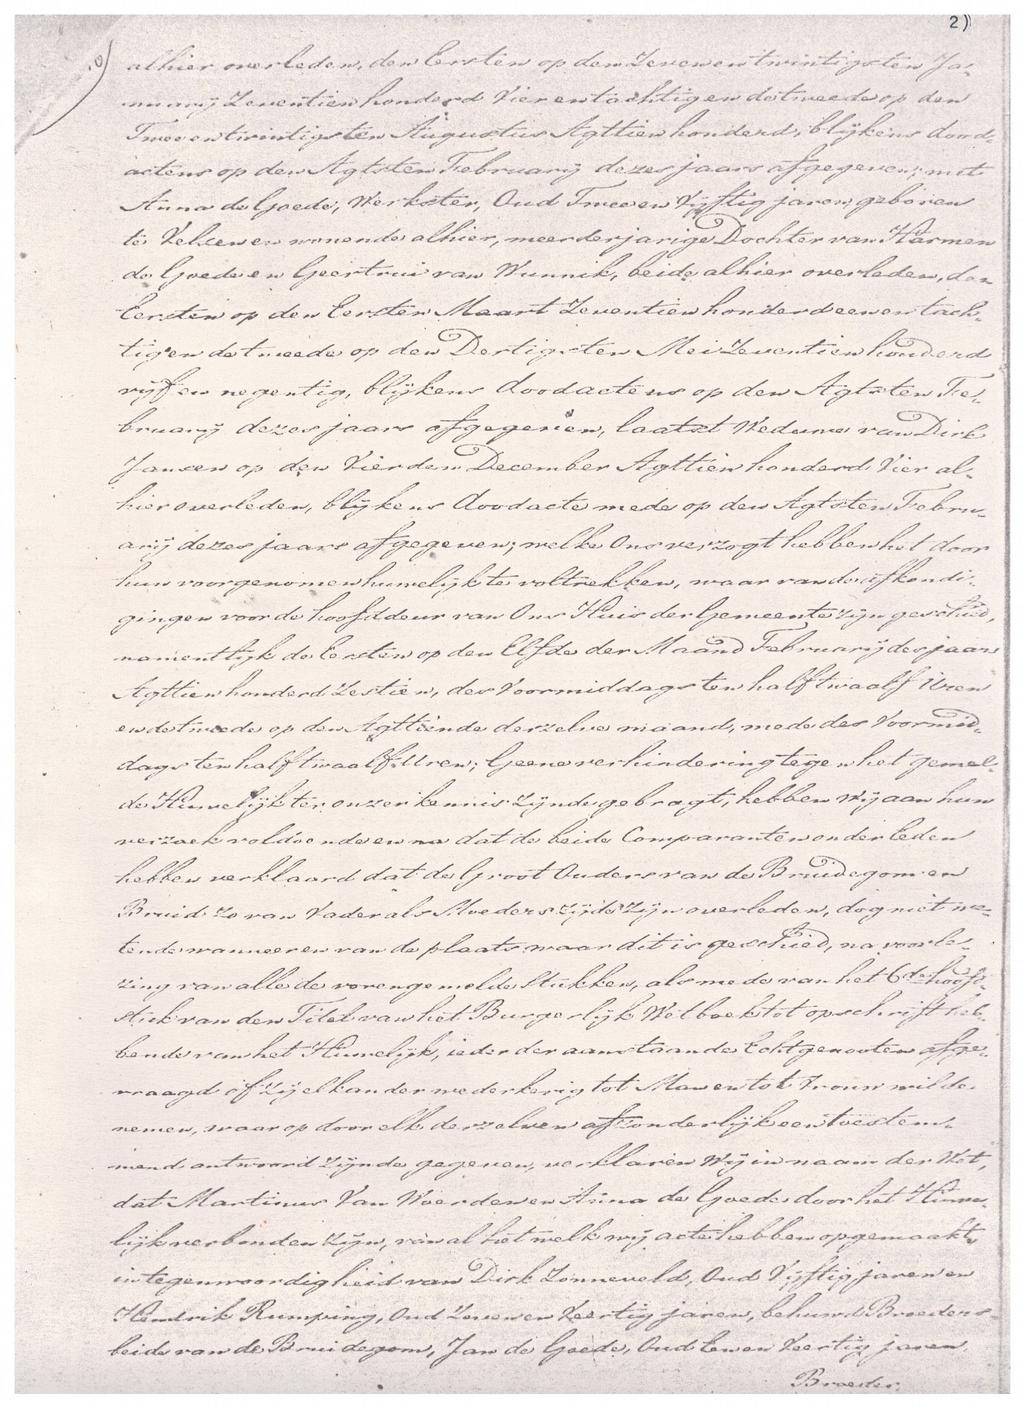 2)
alhier overleden, den Eersten op den Zevenentwintigsten Ja-
nuarij Zeventien honderd Vier en tachtig en de tweede op den
Twee en twintigsten Augustus Agttien honderd, blijkens dood-
actens op den Agtsten Februarij dezes jaars afgegeven; met
Anna de Goede, Werkster, Oud Twee en Vijftig jaren, geboren
te Velsen en wonende alhier, meerderjarige Dochter van Harmen
de Goede en Geertrui van Wunnik, beide alhier overleden, den
Eersten op den Eersten Maart Zeventien honderd een en tach-
tig en de tweede op den Dertigsten Mei Zeventien honderd
vijf en negentig, blijkens doodactens op den Agtsten Fe-
bruarij dezes jaars afgegeven, laatst Weduwe van Dirk
Jansen op den Vierden December Agttien honderd Vier al-
hier overleden, blijkens doodacte mede op den Agtsten Febru-
arij dezes jaars afgegeven; welke Ons verzogt hebben het door
hun voorgenomen huwelijk te voltrekken, waar van de afkondi-
gingen voor de hoofddeur van Ons Huis der Gemeente zijn geschied,
namentlijk de Eersten op den Elfde der Maand Februarij des jaars
Agttien honderd Zestien, des Voormiddags ten half twaalf Uren
en de tweede op den Agttiende derzelve maand, mede des Voormid-
dags ten half twaalf Uren; Geene verhindering tegen het gemel-
de Huwelijk ter onzer kennis zijnde gebragt, hebben Wij aan hun
verzoek voldoende en na dat de beide Comparanten onder Eeden
hebben verklaard dat de Groot Ouders van de Bruidegom en
Bruid zo van Vader als Moeders zijde zijn overleden, dog niet we-
tende wanneer en van de plaats waar dit is geschied, na voorle-
zing van alle de vorengemelde Stukken, als mede van het 6de hoofd-
stuk van den Titel van het Burgerlijk Wetboek tot opschrift heb-
bende van het Huwelijk, ieder der aanstaande Echtgenooten afge-
vraagd of zij elkander wederkerig tot Man en tot Vrouw wilde
nemen, waar op door elk derzelven afzonderlijk een toestem-
mend antwoord zijnde gegeven, verklaren Wij in naam der Wet,
dat Martinus Van Woerden en Anna de Goede door het Huwe-
lijk verbonden zijn, van al het welk wij acte hebben opgemaakt,
in tegenwoordigheid van Dirk Zonneveld, Oud Vijftig jaren en
Hendrik Rumping, Oud Zeven en Veertig jaren, behuwd Broeders
beide van de Bruidegom, Jan de Goede, Oud Een en Veertig jaren
Broeder